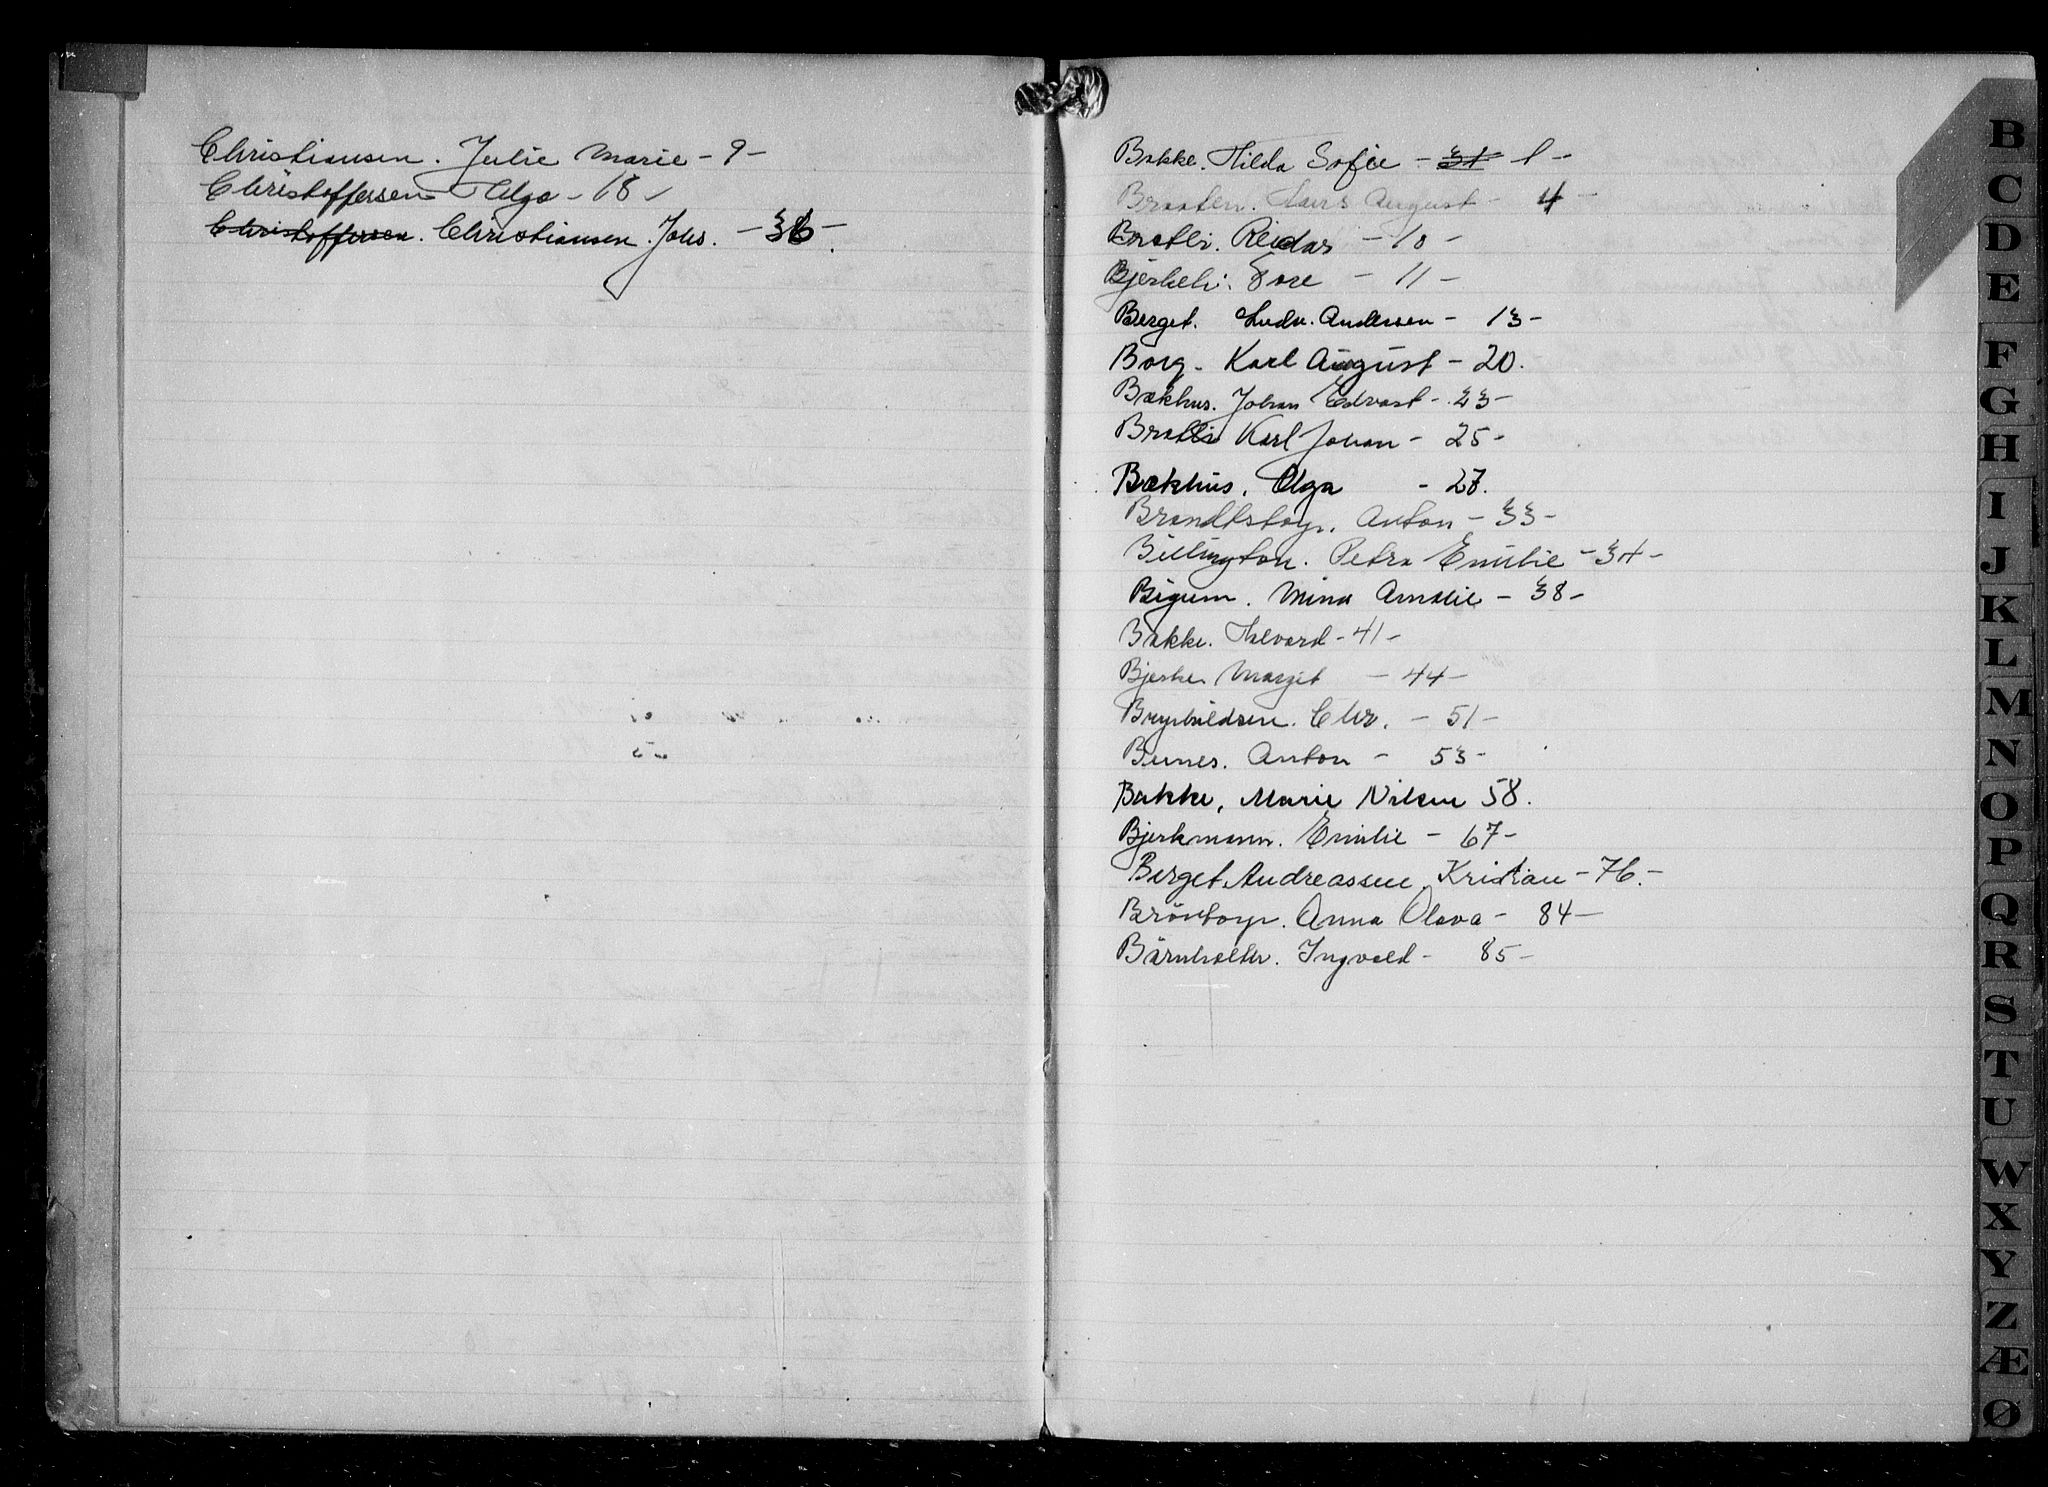 Christiansen. Julie Marie - 9 -
Christoffersen Olga - 18 -
Christoffersen. Christiansen. Johs. - 36 -
Bakke. Hilda Sofie - 31 1 -
Braaten. Hans August - 4 -
Bratli. Reidar - 10 -
Bjerkeli. Tore - 11 -
Berget. Ludv. Andersen - 13 -
Borg. Karl August - 20.
Bækhus. Johan Edvart - 23 -
Bratli Karl Johan - 25 -
Bækhus. Olga - 27.
Brandtstoyr. Anton - 33 -
Billington. Petra Emilie - 34 -
Bigum. Mina Amalie - 38 -
Bakke. Halvard - 41 -
Bjerke Marget - 44 -
Chr. - 51 -
Bunes. Anton - 53 -
Bakke, Marie Nilsen 58.
Bjerkmann. Emilie - 67 -
Berget. Andreassen. Kristian - 76. -
Anna Olava - 84 -
Bärnholdtr. Ingvald - 85 -
B
C
D
E
F
G
H
I
J
K
L
M
N
O
P
Q
R
S
T
U
W
X
Y
Z
Æ
Ø